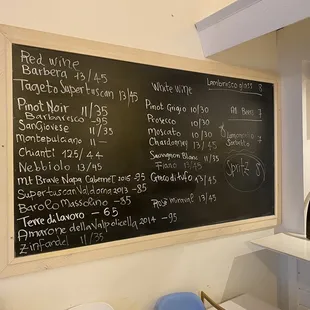 Red wine
Barbera 13/45
Tageto Supertuscan 13/45
Pinot Noir 11/35
Barbaresco -95
Sangiovese 11/35
Montepulciano 11-
Chianti 125/44
Nebbiolo 13/45
Mt Brave Napa Cabernet 2015-95
Supertuscan Valdoma 2013-85
Barolo Massolino -85
Terre da lavoro - 65
Amarone della Valpolicella 2014 -95
Zinfandel 11/35
White wine
Pinot Grigio 10/30
Prosecco 10/30
Moscato 10/30
Chardonnay 13/45
Sauvignon Blanc 11/35
Fiano 13/45
Greco di tufo 13/45
Rosé miraval 13/45
Lambrusco glass 8
All Beers 7
8
Sorbetto
Spritz 8